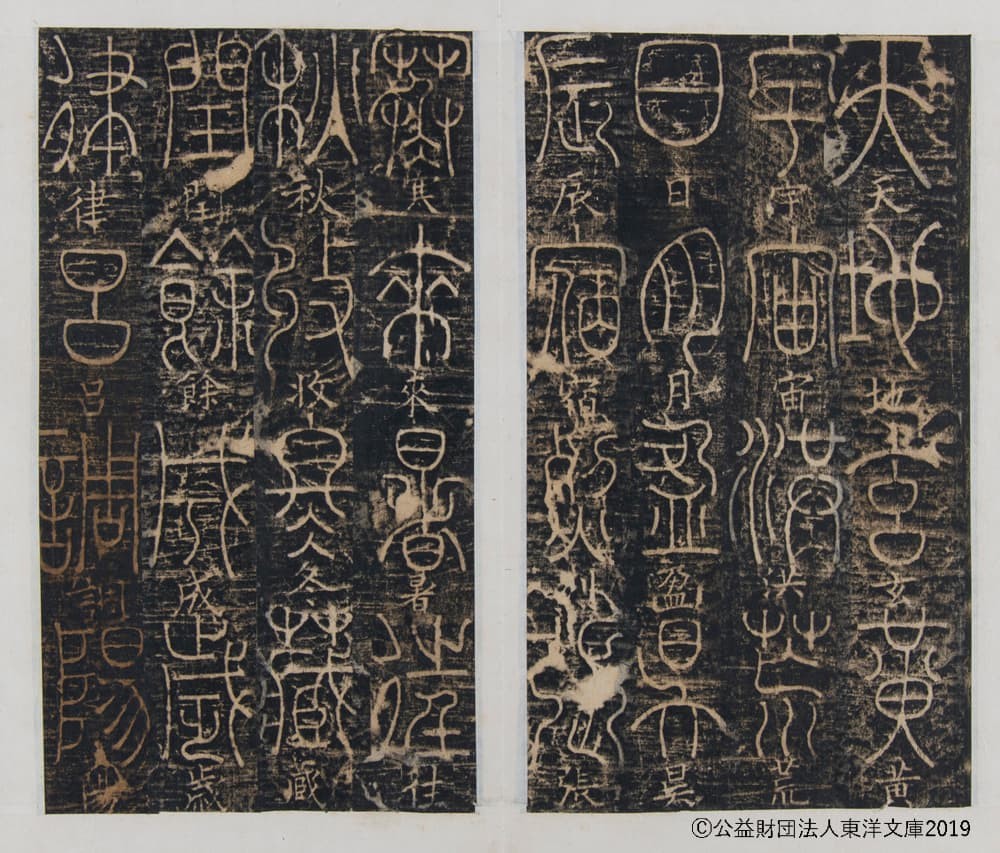 天天地地玄玄黃黃
宇宇宙宙洪洪荒荒
日日月月盈盈昃昃
辰辰宿宿列列張張
寒寒來來暑暑往往
秋秋收收冬冬藏藏
閏閏餘餘成成歲歲
律律呂呂調調陽陽
©公益財団法人東洋文庫2019